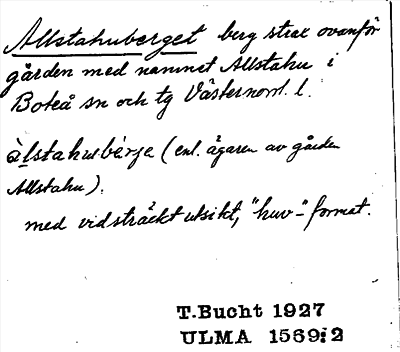 Allstahuberget berg strax ovanför
gården med namnet Allstahu i
Boteå sn och tg Västernorrl. l.
àlstahubèrje (enl. ägaren av gården
Allstahu).
med vidsträckt utsikt, "huv-"format.
T.Bucht 1927
ULMA 1569:2